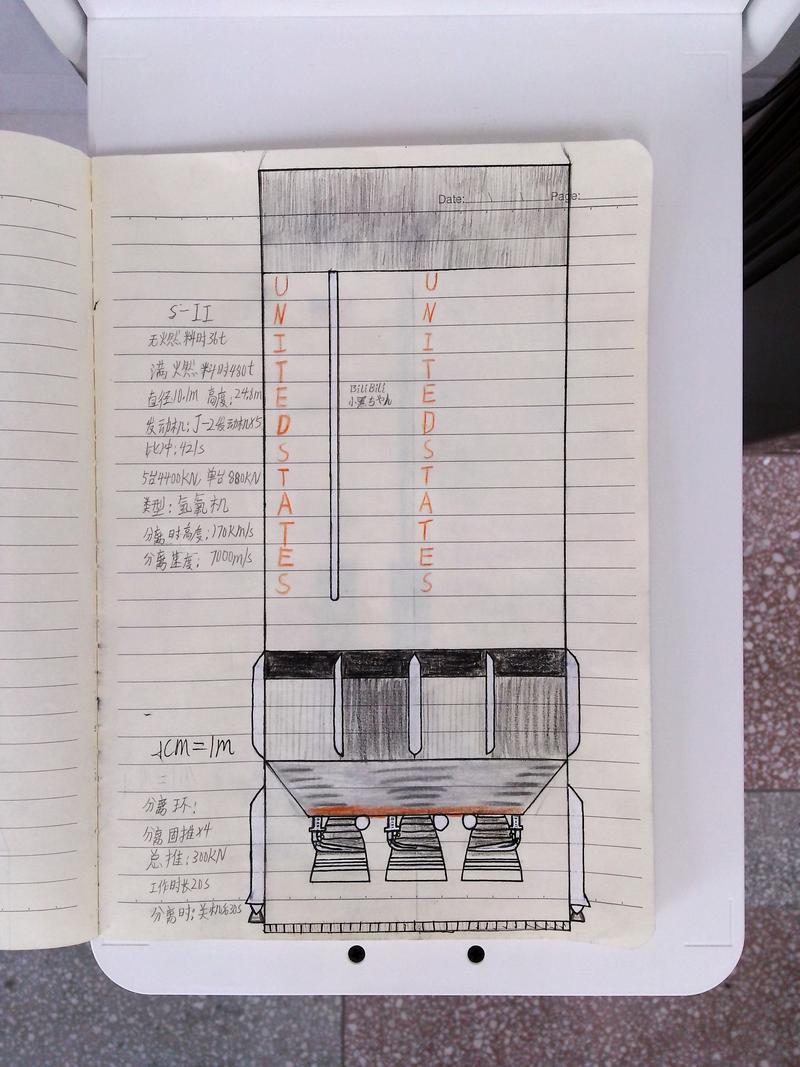 Date: Page:
S-II
无燃料时36t
满燃料时480t
直径10.1m 高度:24.8m
发动机:J-2发动机x5
比冲:421s
5台4400KN,单台880KN
类型:氢氧机
分离时高度:170Km/s
分离速度:7000m/s
UNITEDSTATES
BiliBili
小黑ちゃん
UNITEDSTATES
1cm=1m
分离环:
分离固推x4
总推:300KN
工作时长20s
分离时:关机后30s